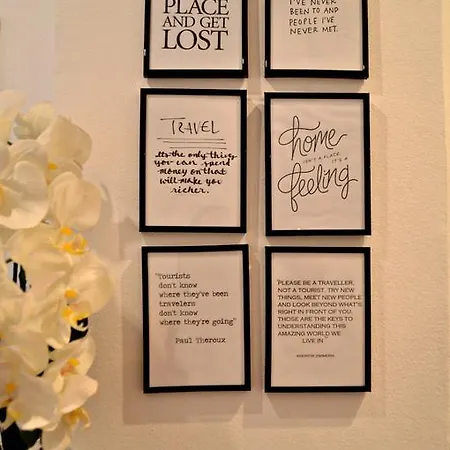 PLACE
AND GET
LOST
I'VE NEVER
BEEN TO AND
PEOPLE I'VE
NEVER MET.
TRAVEL
Its the only thing
you can spend
money on that
will make you
richer.
home
ISN'T A PLACE, IT'S A
feeling
"Tourists
don't know
where they've been
travelers
don't know
where they're going"
Paul Theroux
"PLEASE BE A TRAVELLER,
NOT A TOURIST. TRY NEW
THINGS, MEET NEW PEOPLE
AND LOOK BEYOND WHAT'S
RIGHT IN FRONT OF YOU.
THOSE ARE THE KEYS TO
UNDERSTANDING THIS
AMAZING WORLD WE
LIVE IN"